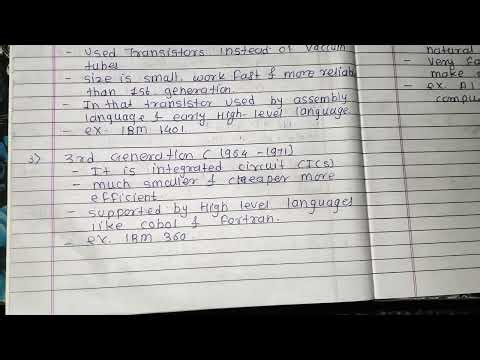 - Used Transistors Instead of Vaccum
tubes
- size is small, work fast & more reliable
than 1st generation.
- In that transistor used by assembly
language & early High-level language
- ex. IBM 1401.
3) 3rd Generation (1964 - 1971)
- It is integrated circuit (ICs)
- much smaller & cheaper more
efficient
- supported by High level languages
like cobol & fortran.
- ex. IBM 360.
natural
- Very fa
make s
- ex. AI
compu